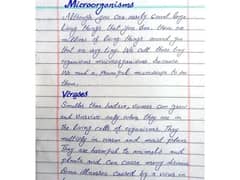 Microorganisms
Although you can easily count large
living things that you see. there are
millions of living things around you
that are very tiny. We call these tiny
organisms microorganisms because
We need a powerful microscope to see
them.
Viruses
Smaller than bacteria, viruses can grow
and survive only when they are in
the living cells of organisms. They
multiply in warm and moist places
They are harmful to animals and
plants and can cause many disease
Some illnesses caused by a virus in